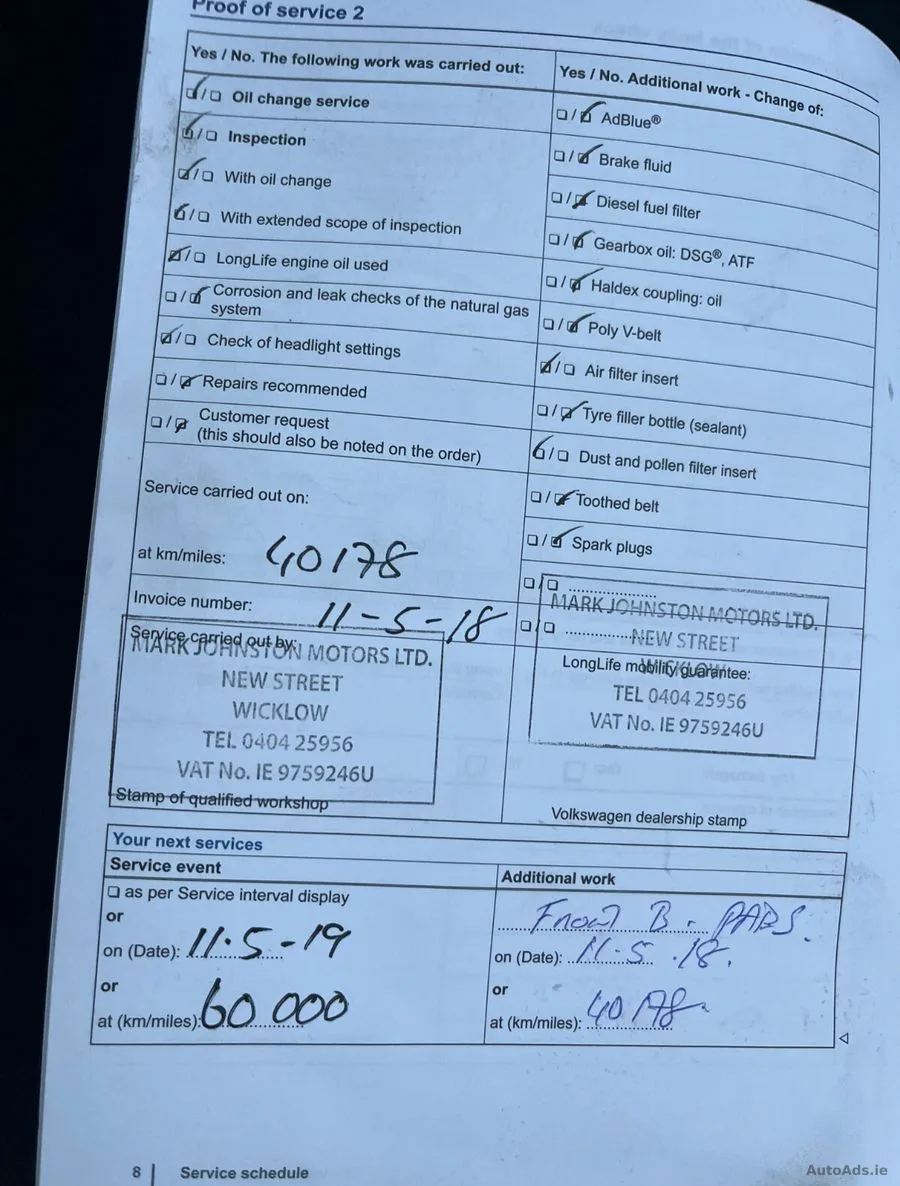 Proof of service 2
Yes / No. The following work was carried out:
Oil change service
Inspection
With oil change
With extended scope of inspection
LongLife engine oil used
Corrosion and leak checks of the natural gas
system
Check of headlight settings
Repairs recommended
Customer request
(this should also be noted on the order)
Service carried out on:
at km/miles: 40178
Invoice number: 11-5-18
Service carried out by:
MARK JOHNSTON MOTORS LTD.
NEW STREET
WICKLOW
TEL 0404 25956
VAT No. IE 9759246U
Stamp of qualified workshop
Yes / No. Additional work - Change of:
AdBlue®
Brake fluid
Diesel fuel filter
Gearbox oil: DSG®, ATF
Haldex coupling: oil
Poly V-belt
Air filter insert
Tyre filler bottle (sealant)
Dust and pollen filter insert
Toothed belt
Spark plugs
MARK JOHNSTON MOTORS LTD.
NEW STREET
WICKLOW
LongLife mobility guarantee:
TEL 0404 25956
VAT No. IE 9759246U
Volkswagen dealership stamp
Your next services
Service event
as per Service interval display
or
on (Date): 11.5-19
or
at (km/miles): 60 000
Additional work
Front B. PADS.
on (Date): 11.5.18.
or
at (km/miles): 40178
8 | Service schedule
AutoAds.ie